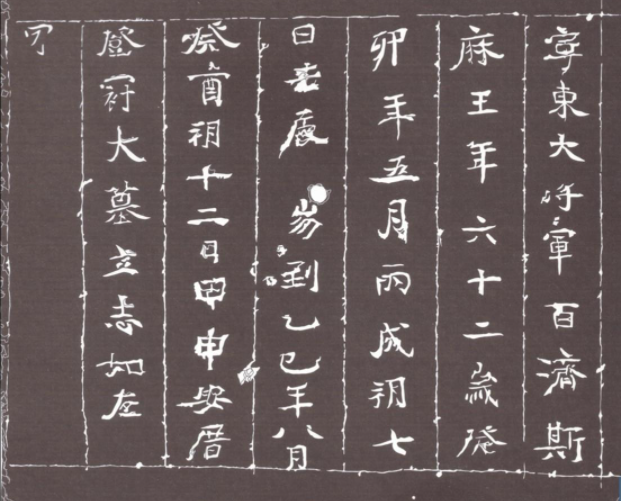 寧東大將軍百濟斯
麻王年六十二歲癸
卯年五月丙戌朔七
日壬辰崩到乙巳年八月
癸酉朔十二日甲申安厝
登冠大墓立志如左